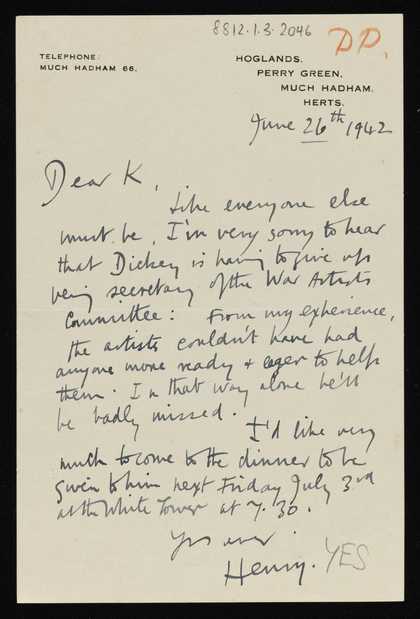 8812.1.3.2046
DD.
TELEPHONE:
MUCH HADHAM 66.
HOGLANDS.
PERRY GREEN,
MUCH HADHAM.
HERTS.
June 26th 1942
Dear K,
Like everyone else
must be, I'm very sorry to hear
that Dickey is having to give up
being secretary of the War Artists
Committee: From my experience,
the artists couldn't have had
anyone more ready & eager to help
them. In that way alone he'll
be badly missed.
I'd like very
much to come to the dinner to be
given to him next Friday July 3rd
at the White Tower at 7.30.
Yrs ever
Henry.
YES